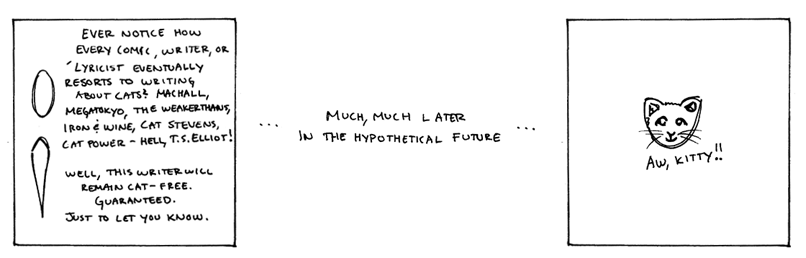 EVER NOTICE HOW
EVERY COMIC, WRITER, OR
LYRICIST EVENTUALLY
RESORTS TO WRITING
ABOUT CATS? MACHALL,
MEGATOKYO, THE WEAKERTHANS,
IRON & WINE, CAT STEVENS,
CAT POWER - HELL, T.S. ELLIOT!
WELL, THIS WRITER WILL
REMAIN CAT-FREE.
GUARANTEED.
JUST TO LET YOU KNOW.
... MUCH, MUCH LATER
IN THE HYPOTHETICAL FUTURE ...
AW, KITTY!!